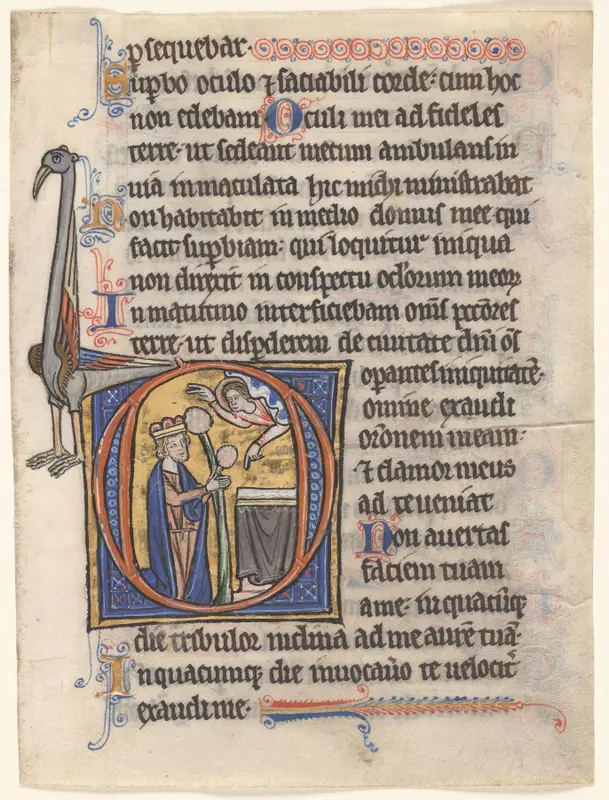 psequebar.
Supbo oculo ⁊ saciabili corde: cum hoc
non edebam Oculi mei ad fideles
terre: ut sedeant mecum ambulans in
uia inmaculata hic michi ministrabat
Non habitabit in medio domus mee qui
facit supbiam: qui loquitur iniqua
non direxit in conspectu oclorum meoꝝ
In matutino interficiebam omīs pctōres
terre: ut dispderem de ciuitate dn̄i ōs
opantes iniquitatē.
Domine exaudi
orōnem meam:
⁊ clamor meus
ad te ueniat
Non auertas
faciem tuam
a me: in quacūqꝫ
die tribulor inclina ad me aurē tuā.
In quacumqꝫ die inuocauo te uelocit᷑
exaudi me.